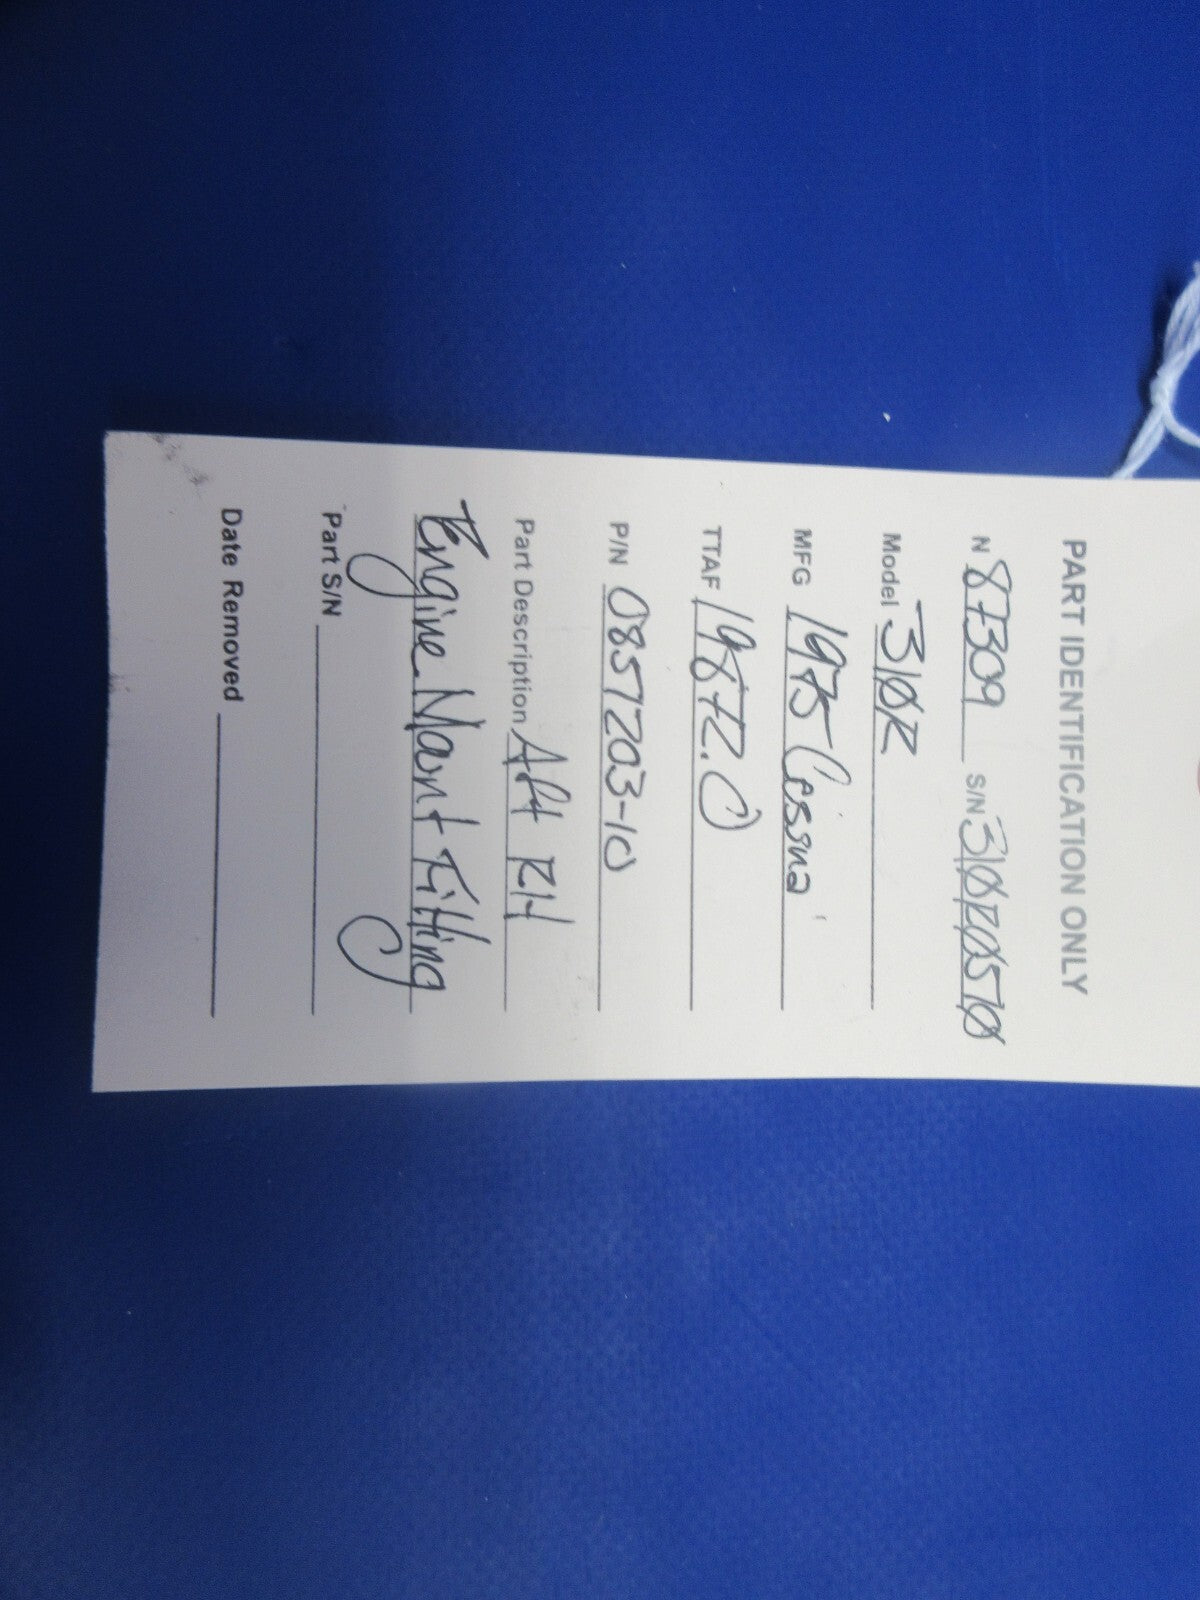 PART IDENTIFICATION ONLY
N 87309 S/N 310R0570
Model 310R
MFG 1975 Cessna
TTAF 19872.0
P/N 0857203-10
Part Description Aft RH
Engine Mount Fitting
Part S/N
Date Removed